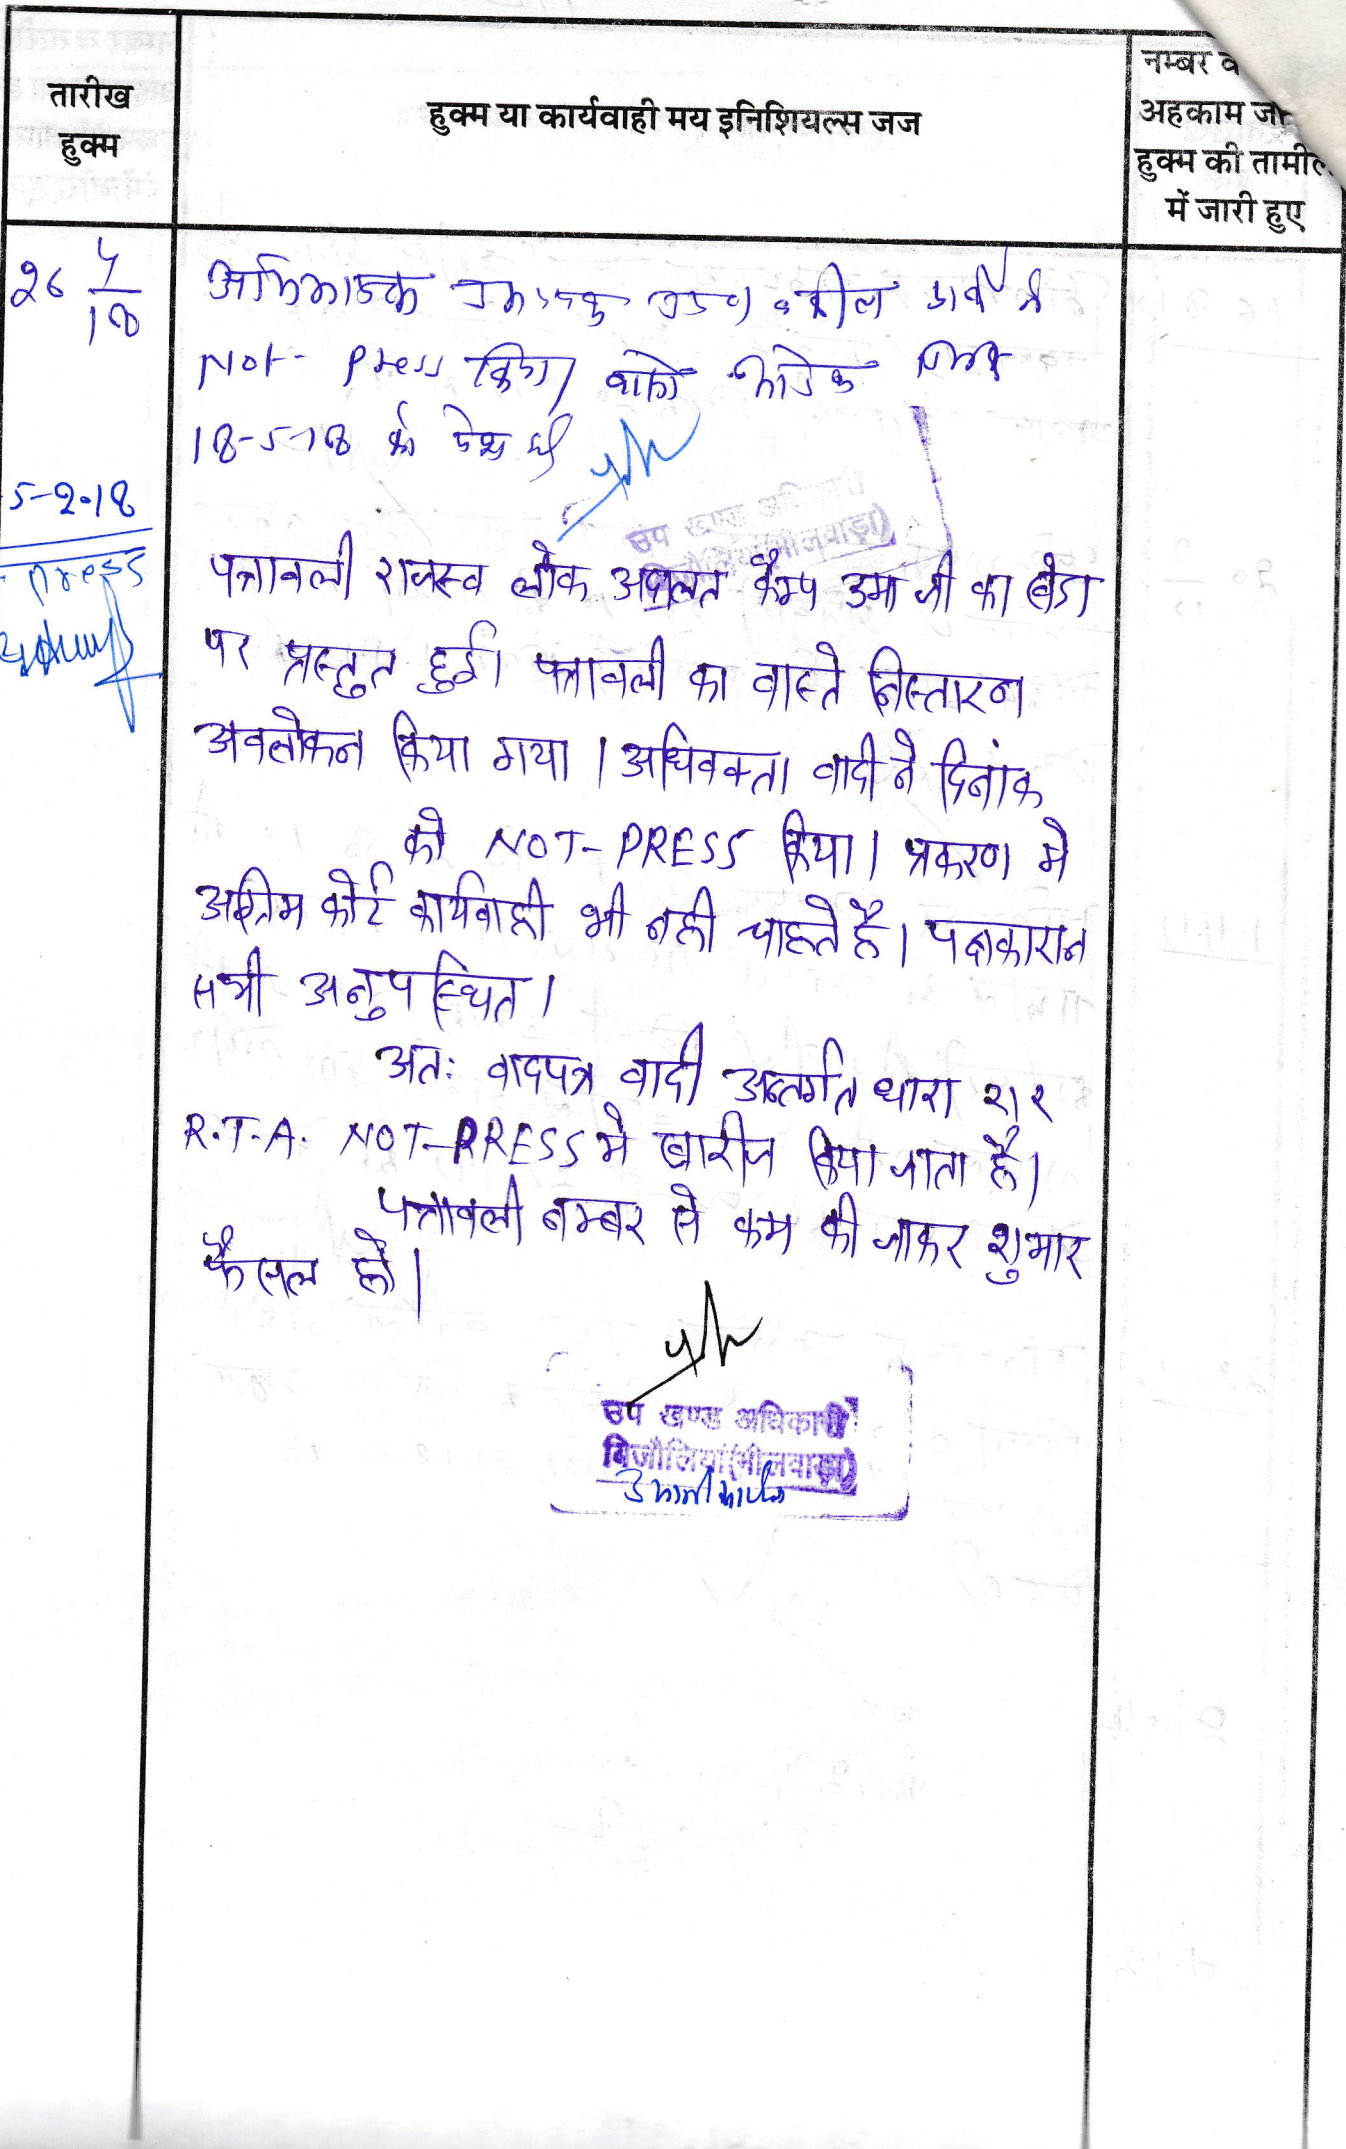 तारीख
हुक्म
हुक्म या कार्यवाही मय इनिशियल्स जज
नम्बर व
अहकाम
हुक्म की तामील
में जारी हुए
26 4/18
Not- Press किया
18-5-18 को पेश हो
5-2-18
press
उप खण्ड
पत्रावली राजस्व लोक अदालत कैम्प उमा जी का खेडा
पर प्रस्तुत हुई। पत्रावली का वास्ते निस्तारण
अवलोकन किया गया। अधिवक्ता वादी ने दिनांक
को NOT-PRESS किया। प्रकरण मे
कोर्ट कार्यवाही भी नही चाहते है। पक्षकारान
सभी अनुपस्थित।
अतः वादपत्र वादी अन्तर्गत धारा
R.T.A. NOT-PRESS मे खारीज किया जाता है।
पत्रावली नम्बर से कम की जाकर शुमार
फैसल हो।
उप खण्ड अधिकारी
बिजौलियां(भीलवाड़ा)